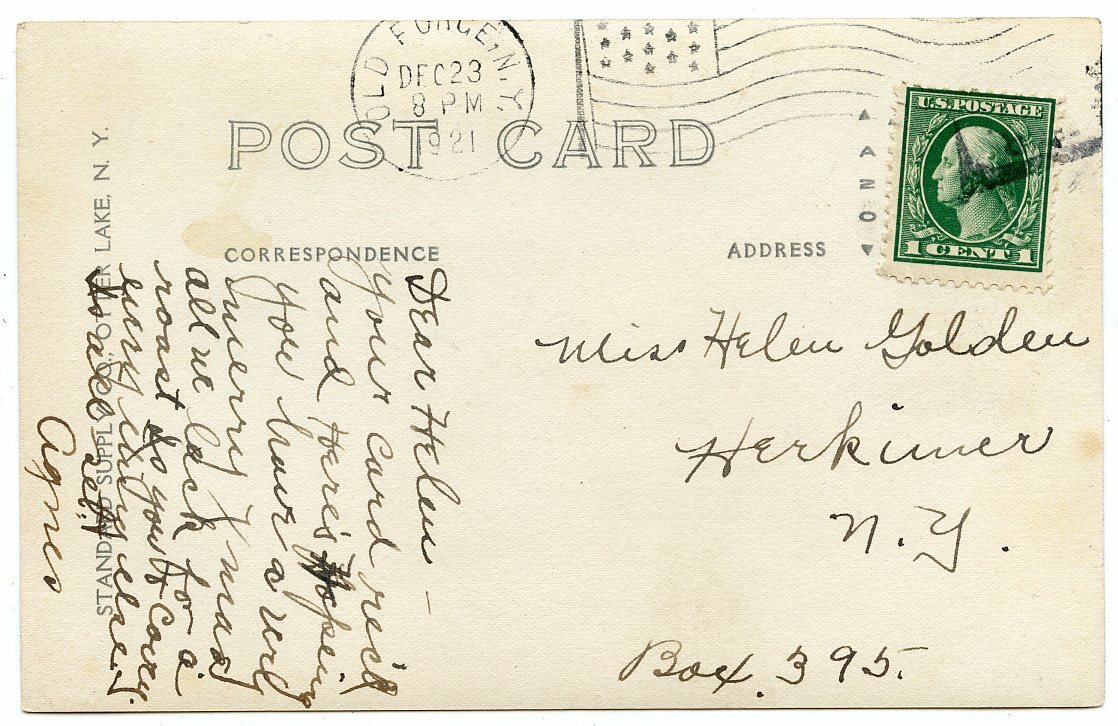 OLD FORGE, N.Y.
DEC 23
8 PM
1921
U.S. POSTAGE
1 CENT 1
AZO
POST CARD
CORRESPONDENCE
ADDRESS
STANDARD SUPPLY CO., OTTER LAKE, N. Y.
Dear Helen —
Your card rec'd
and Here's Hoping
you have a very
merry Xmas
all we lack for a
roast is you & Corey.
every
set
Agnes
Miss Helen Golden
Herkimer
N. Y.
Box. 395.